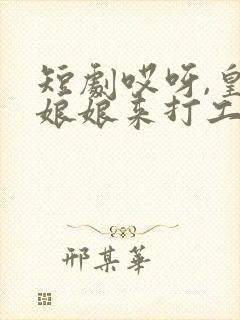 短劇哎呀,皇
娘娘来打工
邢某華